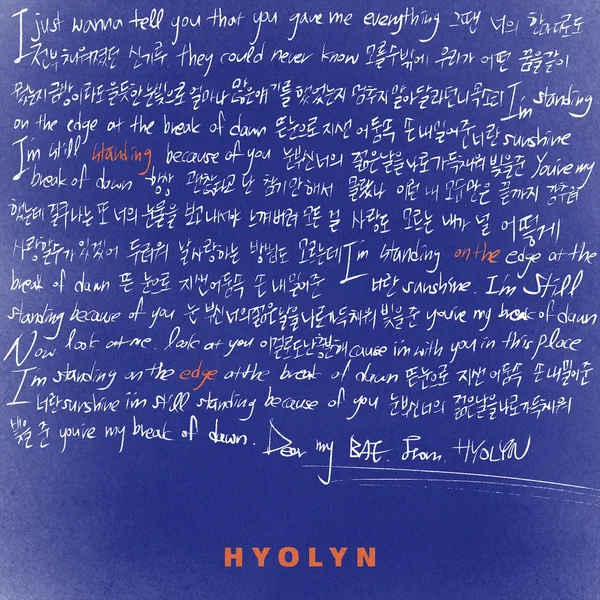 I just wanna tell you that you gave me everything 그땐 너의 함께로도
전부 채워졌던 신기루 they could never know 모를 수밖에 우리가 어떤 꿈을 같이
꿨는지 금방이라도 울듯한 눈빛으로 얼마나 많은 얘기를 했었는지 멈추지 말아달라던 너의 목소리 I'm standing
on the edge at the break of dawn 뜬눈으로 지샌 어둠 속 손 내밀어준 너란 sunshine
I'm still standing because of you 눈부신 너의 젊은 날을 나로 가득 채워 빛을 준 You're my
break of dawn 항상 괜찮다고 난 참기만 해서 몰랐나 이런 내 모습만은 끝까지 감추려
했는데 결국 나는 또 너의 눈물을 보고 내서야 느껴버려 모든 걸 사랑도 모르는 내가 널 어떻게
사랑할 수가 있겠어 두려워 날 사랑하는 방법도 모르는데 I'm standing on the edge at the
break of dawn 뜬 눈으로 지샌 어둠 속 손 내밀어준 너란 sunshine. I'm still
standing because of you 눈부신 너의 젊은 날을 나로 가득 채워 빛을 준 you're my break of dawn
Now look at me. look at you 이걸로도 난 충분해 cause i'm with you in this place
I'm standing on the edge at the break of dawn 뜬눈으로 지샌 어둠 속 손 내밀어준
너란 sunshine i'm still standing because of you 눈부신 너의 젊은 날을 나로 가득 채워
빛을 준 you're my break of dawn. Dear my BAE. From. HYOLYN
HYOLYN